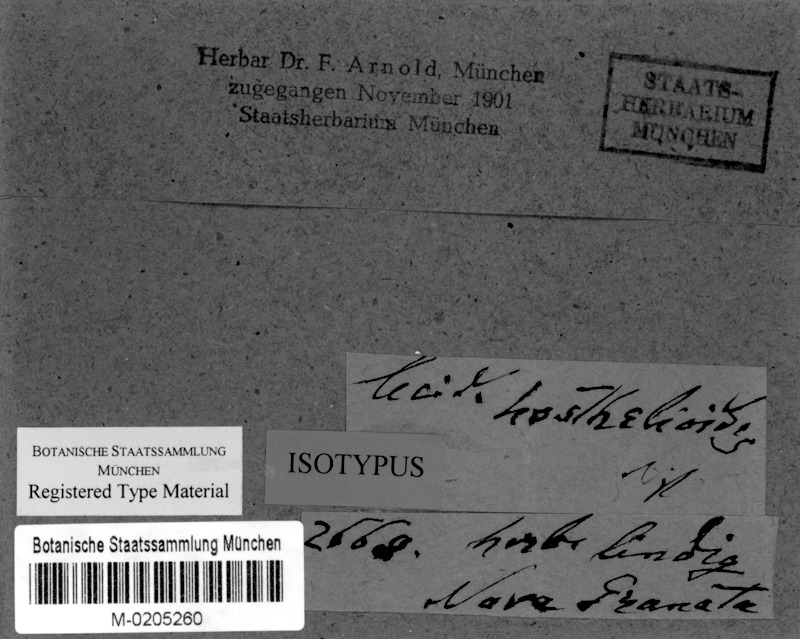 Herbar Dr. F. Arnold, München
zugegangen November 1901
Staatsherbarium München
STAATS-
HERBARIUM
MÜNCHEN
Lecid. hosthelioides
Nyl
BOTANISCHE STAATSSAMMLUNG
MÜNCHEN
Registered Type Material
ISOTYPUS
Botanische Staatssammlung München
M-0205260
2668. herb. Lindig
Nova Granata